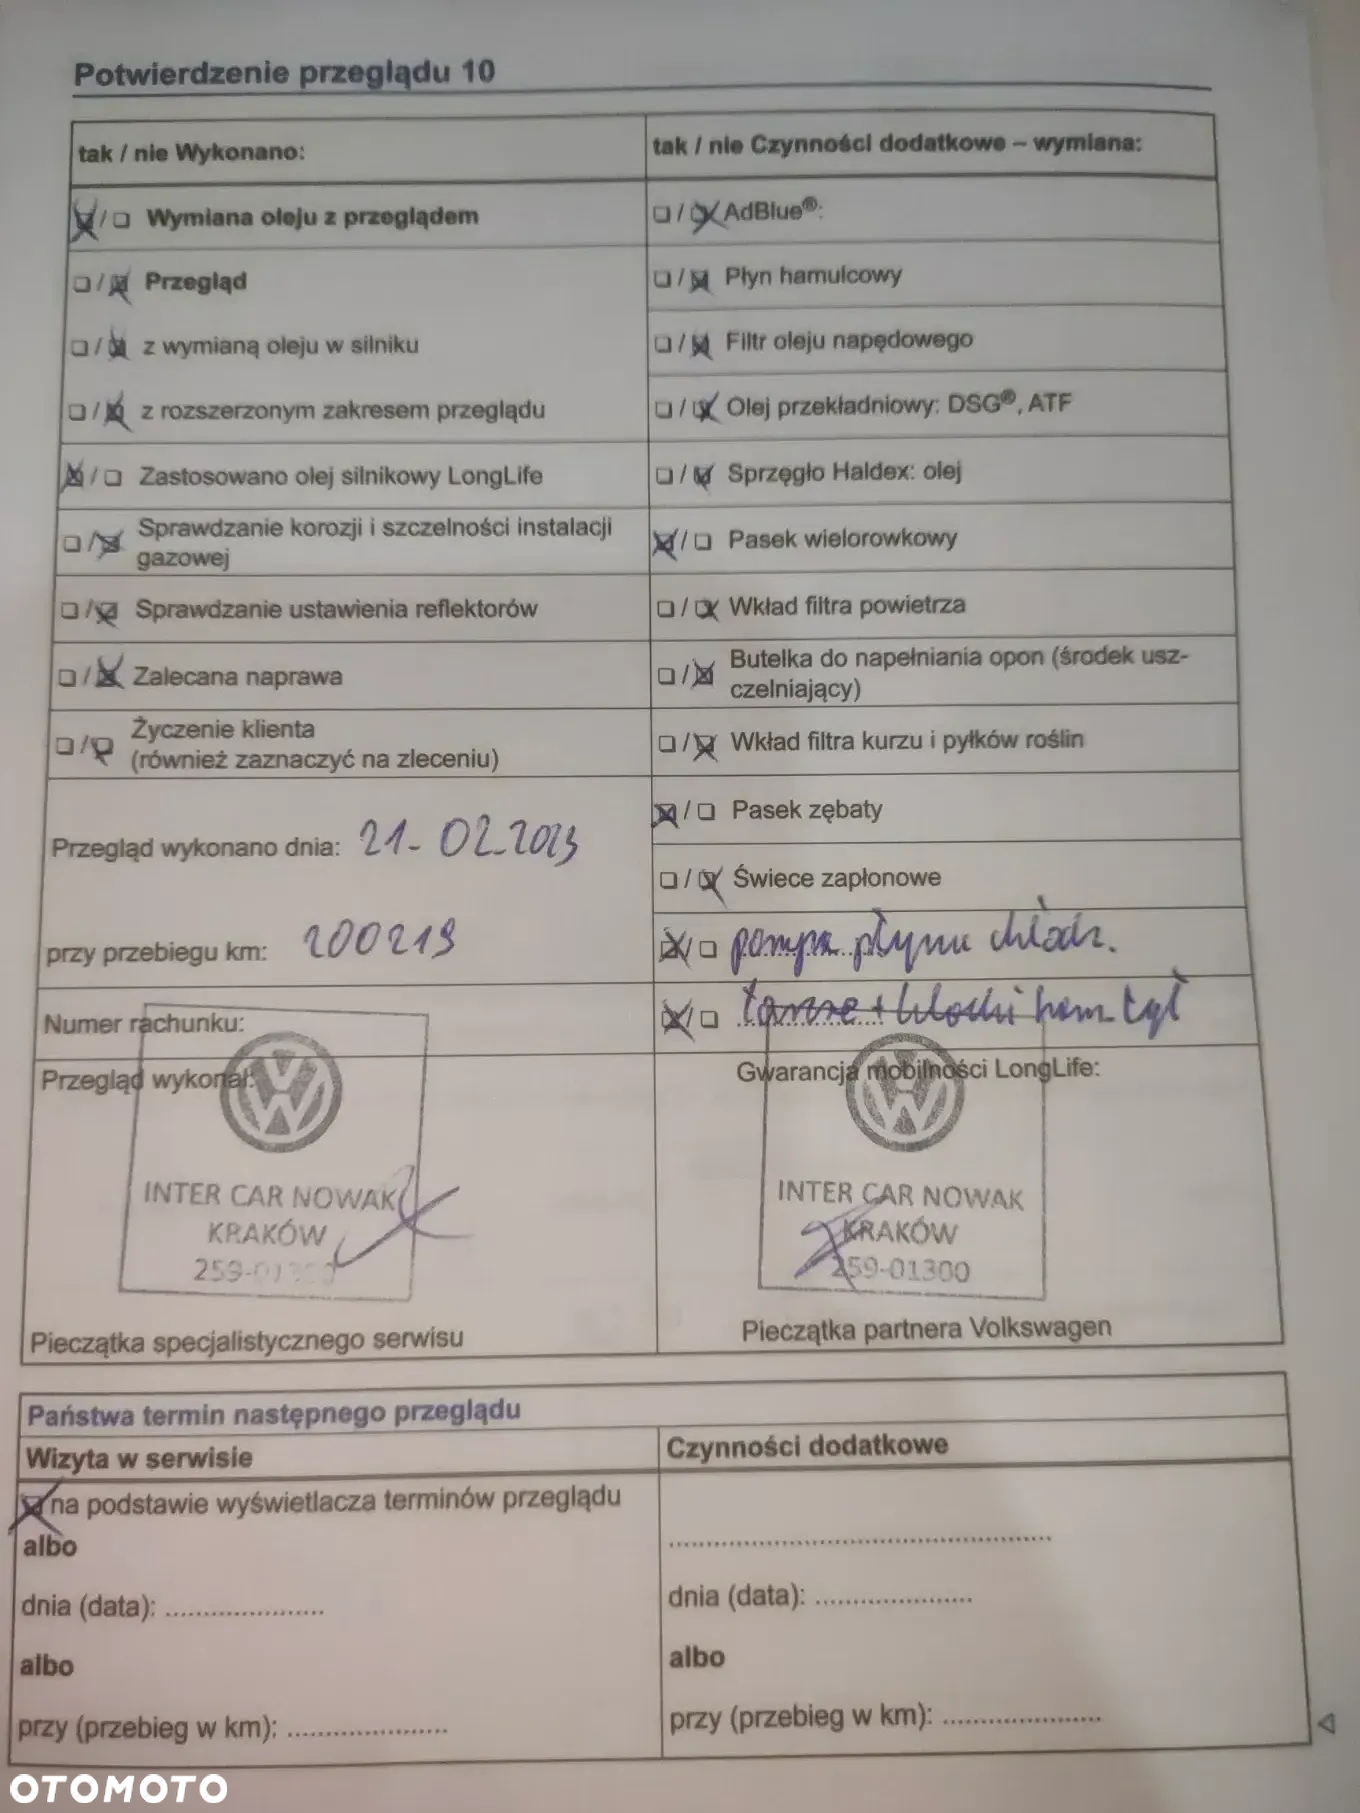 Potwierdzenie przeglądu 10
tak / nie Wykonano:
tak / nie Czynności dodatkowe – wymiana:
Wymiana oleju z przeglądem
AdBlue®:
Przegląd
Płyn hamulcowy
z wymianą oleju w silniku
Filtr oleju napędowego
z rozszerzonym zakresem przeglądu
Olej przekładniowy: DSG®, ATF
Zastosowano olej silnikowy LongLife
Sprzęgło Haldex: olej
Sprawdzanie korozji i szczelności instalacji
gazowej
Pasek wielorowkowy
Sprawdzanie ustawienia reflektorów
Wkład filtra powietrza
Zalecana naprawa
Butelka do napełniania opon (środek usz-
czelniający)
Życzenie klienta
(również zaznaczyć na zleceniu)
Wkład filtra kurzu i pyłków roślin
Pasek zębaty
Przegląd wykonano dnia: 21-02.2023
Świece zapłonowe
przy przebiegu km: 200219
pompa płynu chłodz.
Numer rachunku:
tarcze + klocki ham tył
Przegląd wykonał:
Gwarancja mobilności LongLife:
INTER CAR NOWAK
KRAKÓW
259-01300
INTER CAR NOWAK
KRAKÓW
259-01300
Pieczątka specjalistycznego serwisu
Pieczątka partnera Volkswagen
Państwa termin następnego przeglądu
Wizyta w serwisie
Czynności dodatkowe
na podstawie wyświetlacza terminów przeglądu
albo
dnia (data): ......................
dnia (data): ......................
albo
albo
przy (przebieg w km): ......................
przy (przebieg w km): ......................
OTOMOTO